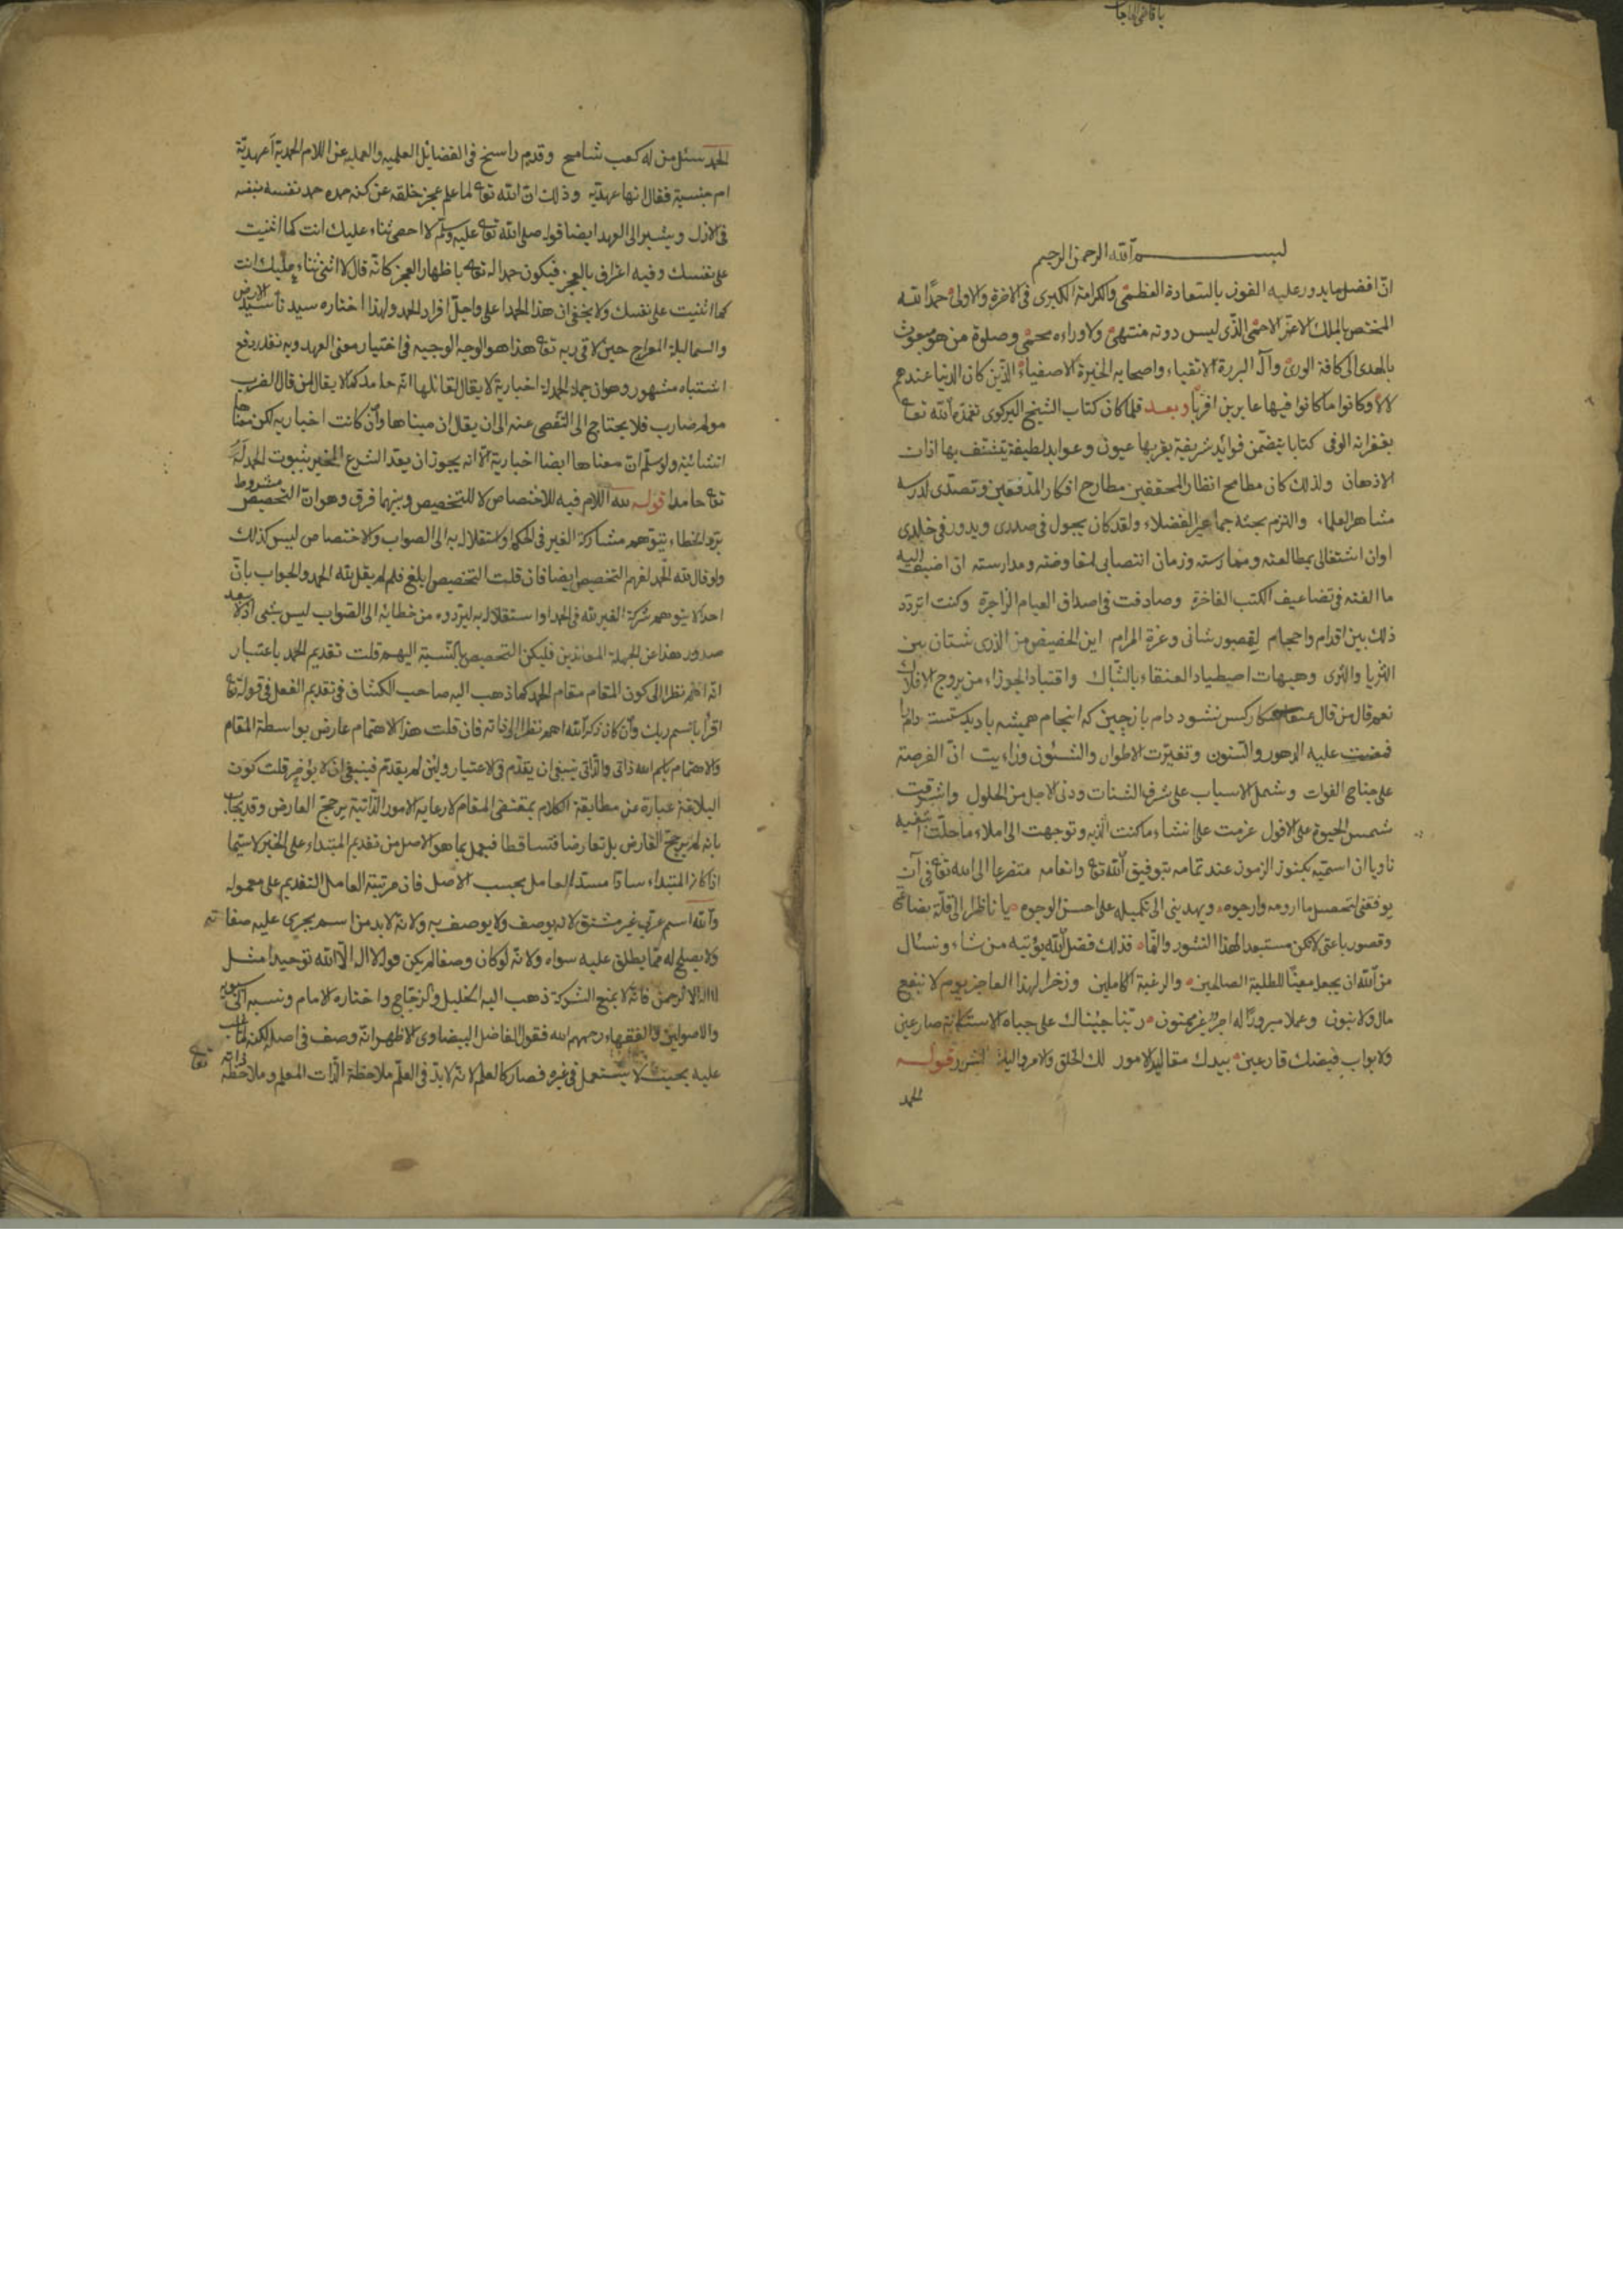 يا قاضي الحاجات
بسم الله الرحمن الرحيم
انّ افضل ما يدور عليه الفوز بالسّعادة العظمى والكرامة الكبرى فى الاخرة والاولى حمدًا لله
المختص بالملك الاعزّ الاحمى الذّى ليس دونه منتهى ولا وراءه محمى وصلوة من هو مبعوث
بالهدى الى كافة الورى وآله البررة الاتقياء واصحابه الخيرة الاصفياء الذّين كان الدنيا عندهم
كلا وكانوا ما كانوا فيها عابرين وبعد فلما كان كتاب الشيخ البركوى تغمّده الله تعا
بغفرانه الوفى كتابا يتضمّن فوائد شريفة يقرّ بها عيون وعوايد لطيفة يتشنّف بها اذان
الاذهان ولذلك كان مطامح انظار المحققين مطارح افكار المدّققين وتصدّى لدرسه
مشاهير العلماء والتزم بحثه جما غير الفضلاء ولقد كان يجول فى صدرى ويدور فى خلدى
اوان اشتغالى بمطالعته وممارسته وزمان انتصابى لمفاوضته ومدارسته ان اضيف اليه
ما الفته فى تضاعيف الكتب الفاخرة وصادفت فى اصداق العيام الزاجرة وكنت اتردّد
ذلك بين اقدام واحجام لقصور شانى وعزة المرام اين الحضيض من الذرى شتان بين
الثريا والثرى وهيهات اصطياد العنقاء بالشّباك واقتياد الجوزاء من بروج الافلاك
نعم قال من قال عنقا شكار كس نشود دام باز چين كه اينجا هميشه باد بدستست دام را
فمضت عليه الدهور والسّنون وتغيّرت الاطوار والشئون ورايت انّ الفرصة
على جناح الفوات وشمل الاسباب على شرف الشتات ودنى الاجل من الحلول واشرفت
شمس الحيوة على الافول عزمت على انشاء ما كنت انويه وتوجهت الى املاء ما حلّت
ناويا ان اسمّيه بكنوز الرموز عند تمامه بتوفيق الله تعا وانعامه متضرعا الى الله تعا فى آن
يوفقنى لتحصيل ما ارومه وارجوه ويهدينى الى تكميله على احسن الوجوه يا ناظرا الى قلّة بضاعتى
وقصور باعتى لا تكن مستبعدا لهذا فذلك فضل الله يؤتيه من شاء ونسئال
من الله ان يجعل معينًا للطلبة الصالحين والرغبة الكاملين وذخرا لهذا العاجز يوم لا ينفع
مال ولا بنون وعملا مبرورا له اجر غير ممنون ربّنا جئناك على جباه الاستكانة صارعين
ولابواب فيضك قارعين بيدك مقاليد الامور لك الخلق والامر واليك النشور قوله
الحمد
الحمد سئل من له كعب شامح وقدم راسخ فى الفضائل العلميه والعمليه عن اللام الحمديّة أعهديّة
ام جنسية فقال انها عهديّة وذلك ان الله تعا لما علم عجز خلقه عن كنه حمده حمد نفسه بنفسه
فى الازل ويشير الى العهد ايضا قوله صلى الله تعا عليه وسلم لا احصى ثناء عليك انت كما اثنيت
على نفسك وفيه اعتراف بالعجز فيكون حمدا له تعا باظهار العجز كانّه قال لا اثنى ثناء عليك انت
كما اثنيت على نفسك ولا يخفى ان هذا الحمد اعلى واجلّ افراد الحمد ولهذا اختاره سيد الارض
والسما ليلة المعراج حين لاقى ربه تعا هذا هو الوجه الوجيه فى اختيار معنى العهد وبه تقدر دفع
اشتباه مشهور وهو ان جملة الحمدلة اخبارية لا يقال لقائلها انّه حامد كما لا يقال لمن قال الضرب
مولم ضارب فلا يحتاج الى التّفصى عنه الى ان يقال ان مبناها وان كانت اخباريه لكن معناها
انشائية ولو سلّم انّ معناها ايضا اخبارية الّا انه يجوز ان يعدّ الشرع المخبر بثبوت الحمد له
تعا حامدا قوله لله اللام فيه للاختصاص لا للتخصيص وبينهما فرق وهو انّ التخصيص مشروط
بردّ الخطاء بتوهم مشاركة الغير فى الحكم او استقلاله به الى الصواب والاختصاص ليس كذلك
ولو قال لله الحمد لفهم التخصيص ايضا فان قلت التخصيص ابلغ فلم لم يقل لله الحمد والجواب بانّ
احدا لا يتوهم شركة الغير لله فى الحمد او استقلاله به ليردّوه من خطائه الى الصواب ليس بشئ اذ لا يبعد
صدور هذا عن الجهلة المعاندين فليكن التخصيص بالنّسبة اليهم قلت تقديم الحمد باعتبار
انّه اهمّ نظرا الى كون المقام مقام الحمد كما ذهب اليه صاحب الكشاف فى تقديم الفعل فى قوله تعا
اقرأ باسم ربك وان كان ذكر الله اهم نظرا الى ذاته فان قلت هذا الاهتمام عارض بواسطة المقام
والاهتمام باسم الله ذاتى والذّاتى ينبغى ان يقدّم فى الاعتبار ولئن لم يقدّم فينبغى ان لا يؤخّر قلت كون
البلاغة عبارة عن مطابقة الكلام بمقتضى المقام لا رعاية الامور الذّاتيّة يرجّح العارض وقد يجاب
بانه لم يرجّح العارض بل تعارضا فتساقطا فيعمل بما هو الاصل من تقديم المبتداء على الخبر لا سيّما
اذا كان المبتداء سادّا مسدّ العامل بحسب الاصل فان مرتبة العامل التقديم على معموله
والله اسم عربى غير مشتق لانه يوصف ولا يوصف به ولانّه لا بدّ من اسم يجرى عليه صفاته
ولا يصلح له ممّا يطلق عليه سواه ولانّه لو كان وصفا لم يكن قولا لا اله الّا الله توحيدا مثل
لا اله الا الرحمن فانّه لا يمنع الشركة ذهب اليه الخليل والزجّاج واختاره الامام ونسبه الى سيبويه
والاصوليّين والفقهاء رحمهم الله فقول الفاضل البيضاوى الاظهر انّه وصف فى اصله لكنه لما غلب
عليه بحيث لا يستعمل فى غيره فصار كالعلم لانّه لا بدّ فى العلم ملاحظة الذّات المعلم وملاحظة
ذاته تعا